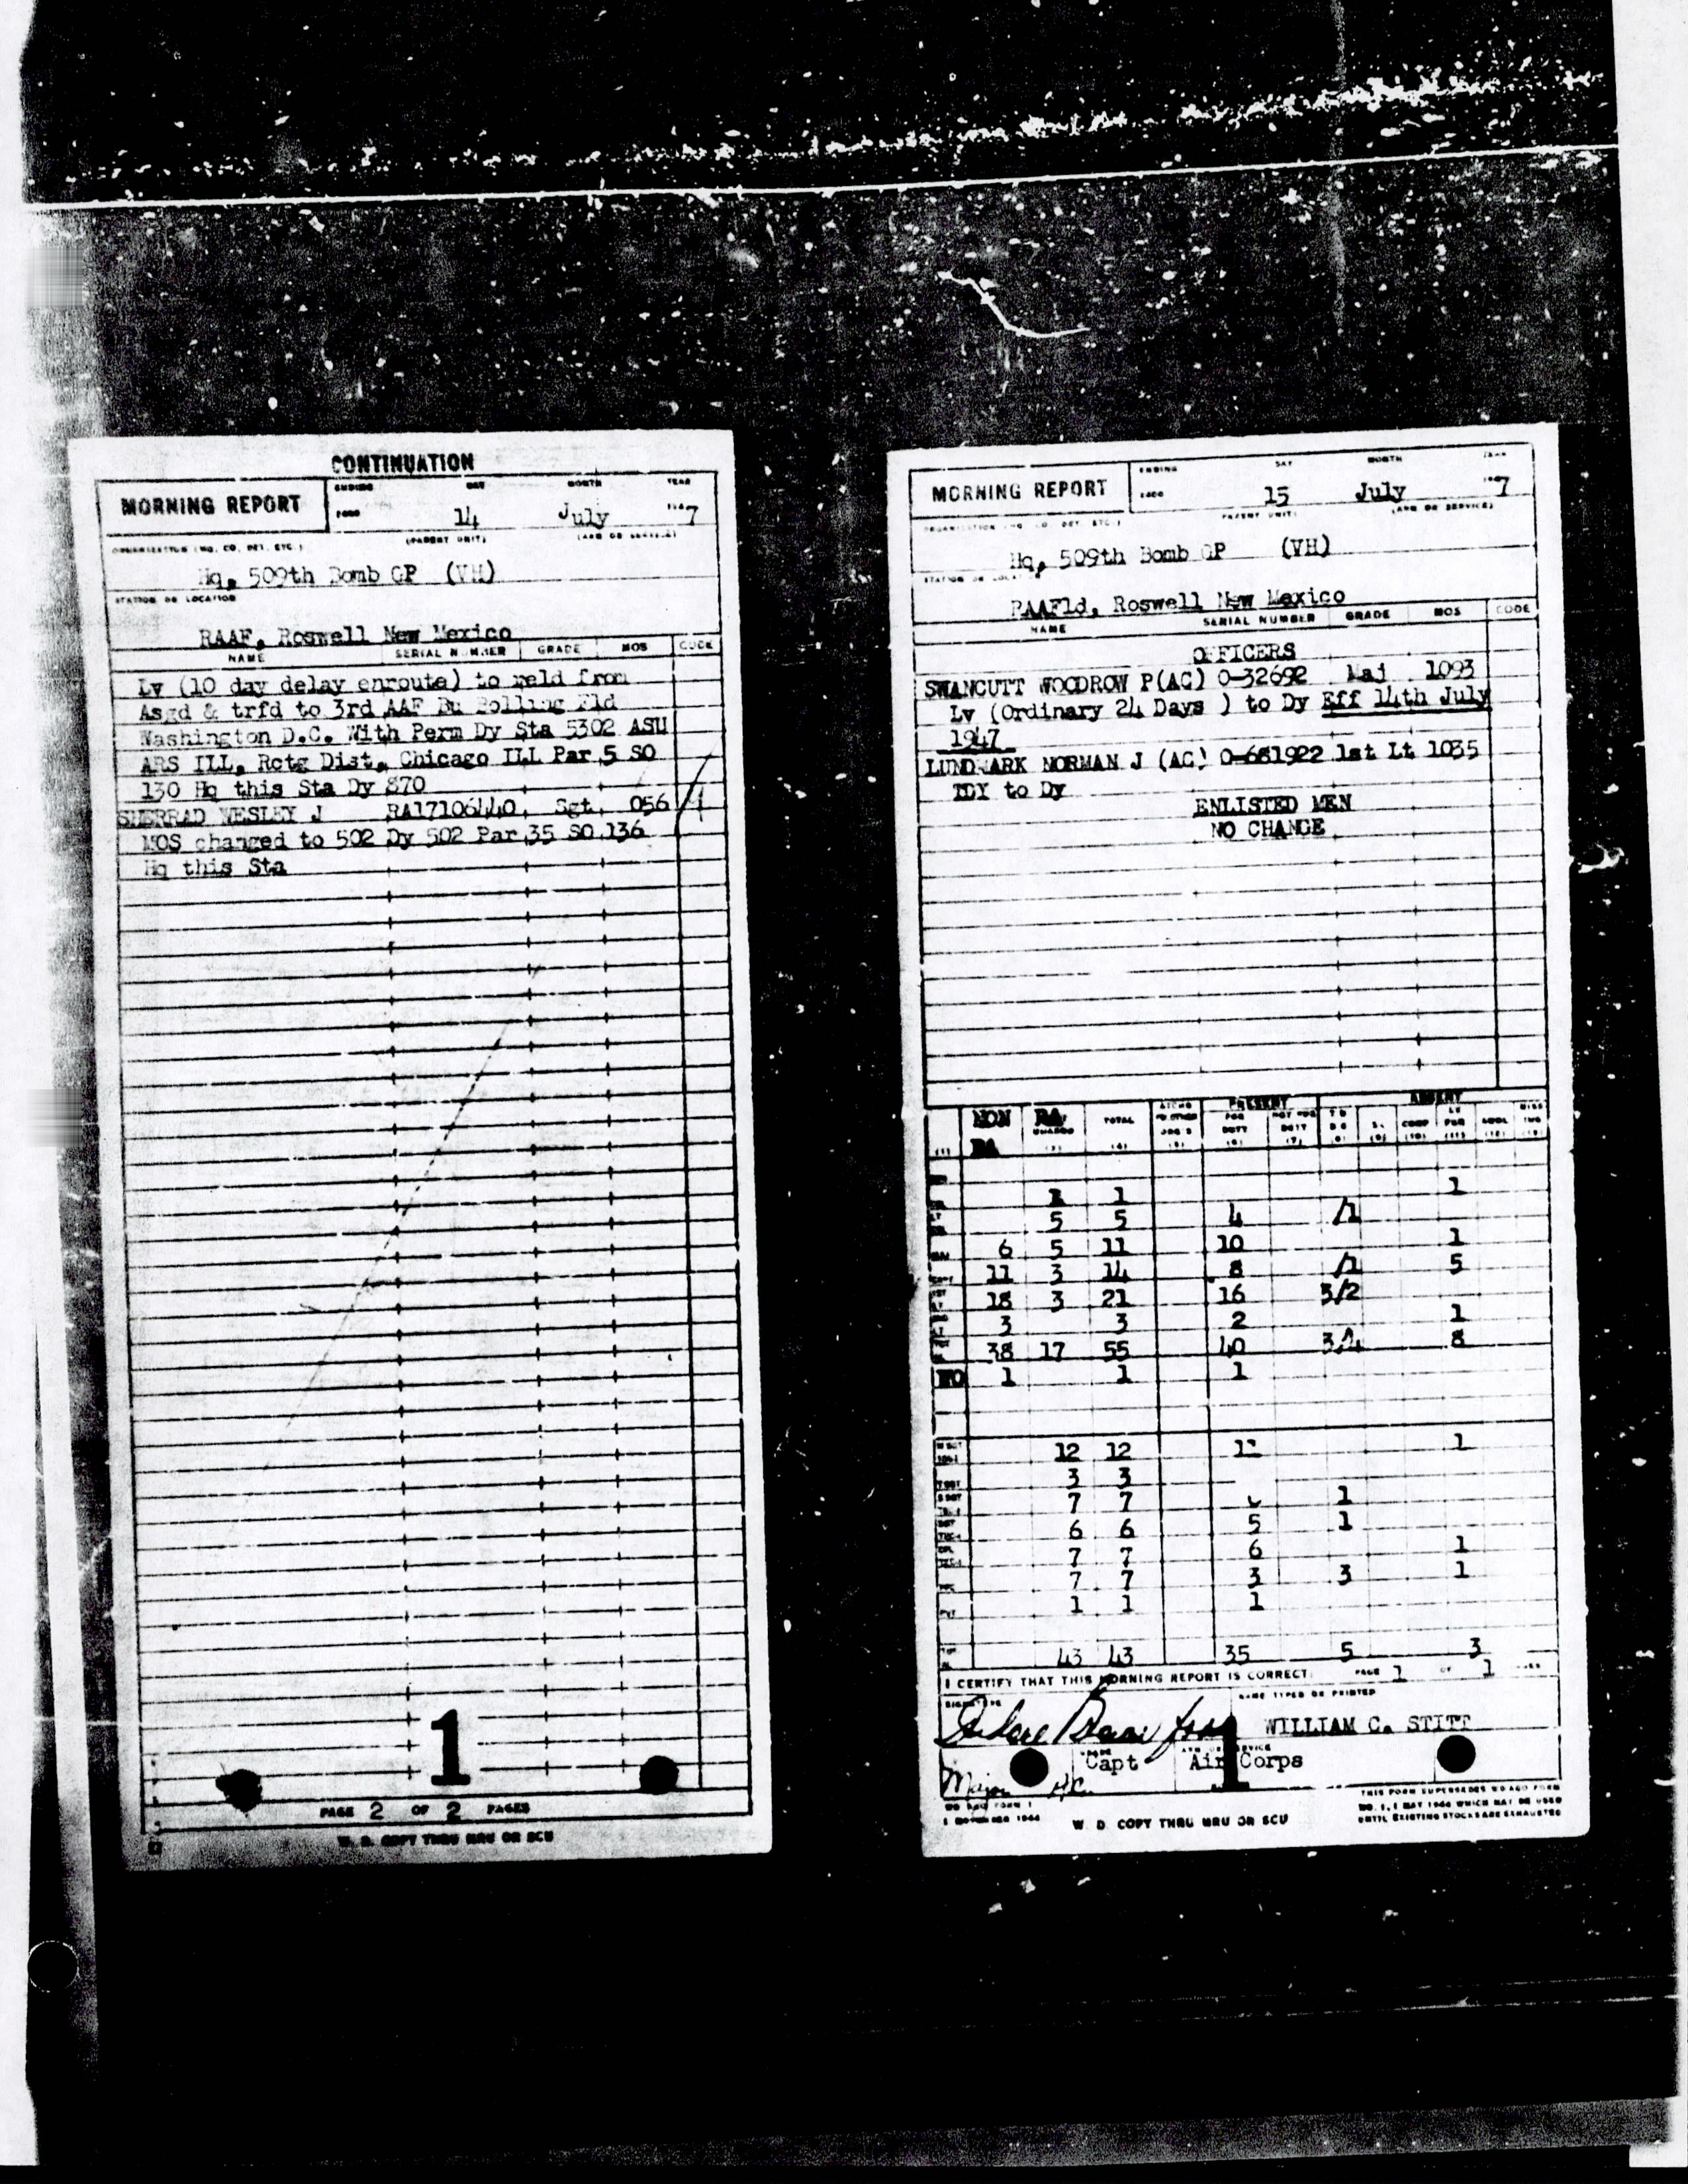 CONTINUATION
MORNING REPORT
ENDING DAY MONTH YEAR
14 July 1947
(PARENT UNIT) (ARM OR SERVICE)
ORGANIZATION (HQ. CO. DET. ETC.)
Hq, 509th Bomb GP (VH)
STATION OR LOCATION
RAAF, Roswell New Mexico
NAME SERIAL NUMBER GRADE MOS CODE
Lv (10 day delay enroute) to reld from
Asgd & trfd to 3rd AAF Bu Bolling Fld
Washington D.C. With Perm Dy Sta 5302 ASU
ARS ILL, Rctg Dist, Chicago ILL Par 5 SO
130 Hq this Sta Dy 870
SHERRAD WESLEY J RA17106440 Sgt 056
MOS changed to 502 Dy 502 Par 35 SO 136
Hq this Sta
1
PAGE 2 OF 2 PAGES
W. D. COPY THRU MRU OR SCU
MORNING REPORT
ENDING DAY MONTH YEAR
15 July 1947
ORGANIZATION (HQ. CO. DET. ETC.) PARENT UNIT) (ARM OR SERVICE)
Hq, 509th Bomb GP (VH)
STATION OR LOCATION
RAAFld, Roswell New Mexico
NAME SERIAL NUMBER GRADE MOS CODE
OFFICERS
SWANCUTT WOODROW P(AC) O-32692 Maj 1093
Lv (Ordinary 24 Days ) to Dy Eff 14th July
1947
LUNDMARK NORMAN J (AC) O-681922 1st Lt 1035
TDY to Dy
ENLISTED MEN
NO CHANGE
PRESENT ABSENT
NON RA TOTAL FOR DUTY NOT FOR DUTY
RA
1 1 1
5 5 4 /1
6 5 11 10 1
11 3 14 8 /1 5
18 3 21 16 3/2
3 3 2 1
38 17 55 40 3/4 8
WO 1 1 1
12 12 1
3 3
7 7 1
6 6 5 1
7 7 6 1
7 7 3 3 1
PVT 1 1 1
43 43 35 5 3
I CERTIFY THAT THIS MORNING REPORT IS CORRECT. PAGE 1 OF 1
SIGNATURE NAME TYPED OR PRINTED
WILLIAM C. STITT
Capt Air Corps
Major AC
1
WD AGO FORM 1
1 NOVEMBER 1944
W. D. COPY THRU MRU OR SCU
THIS FORM SUPERSEDES WD AGO FORM
NO. 1, 1 MAY 1944 WHICH MAY BE USED
UNTIL EXISTING STOCKS ARE EXHAUSTED